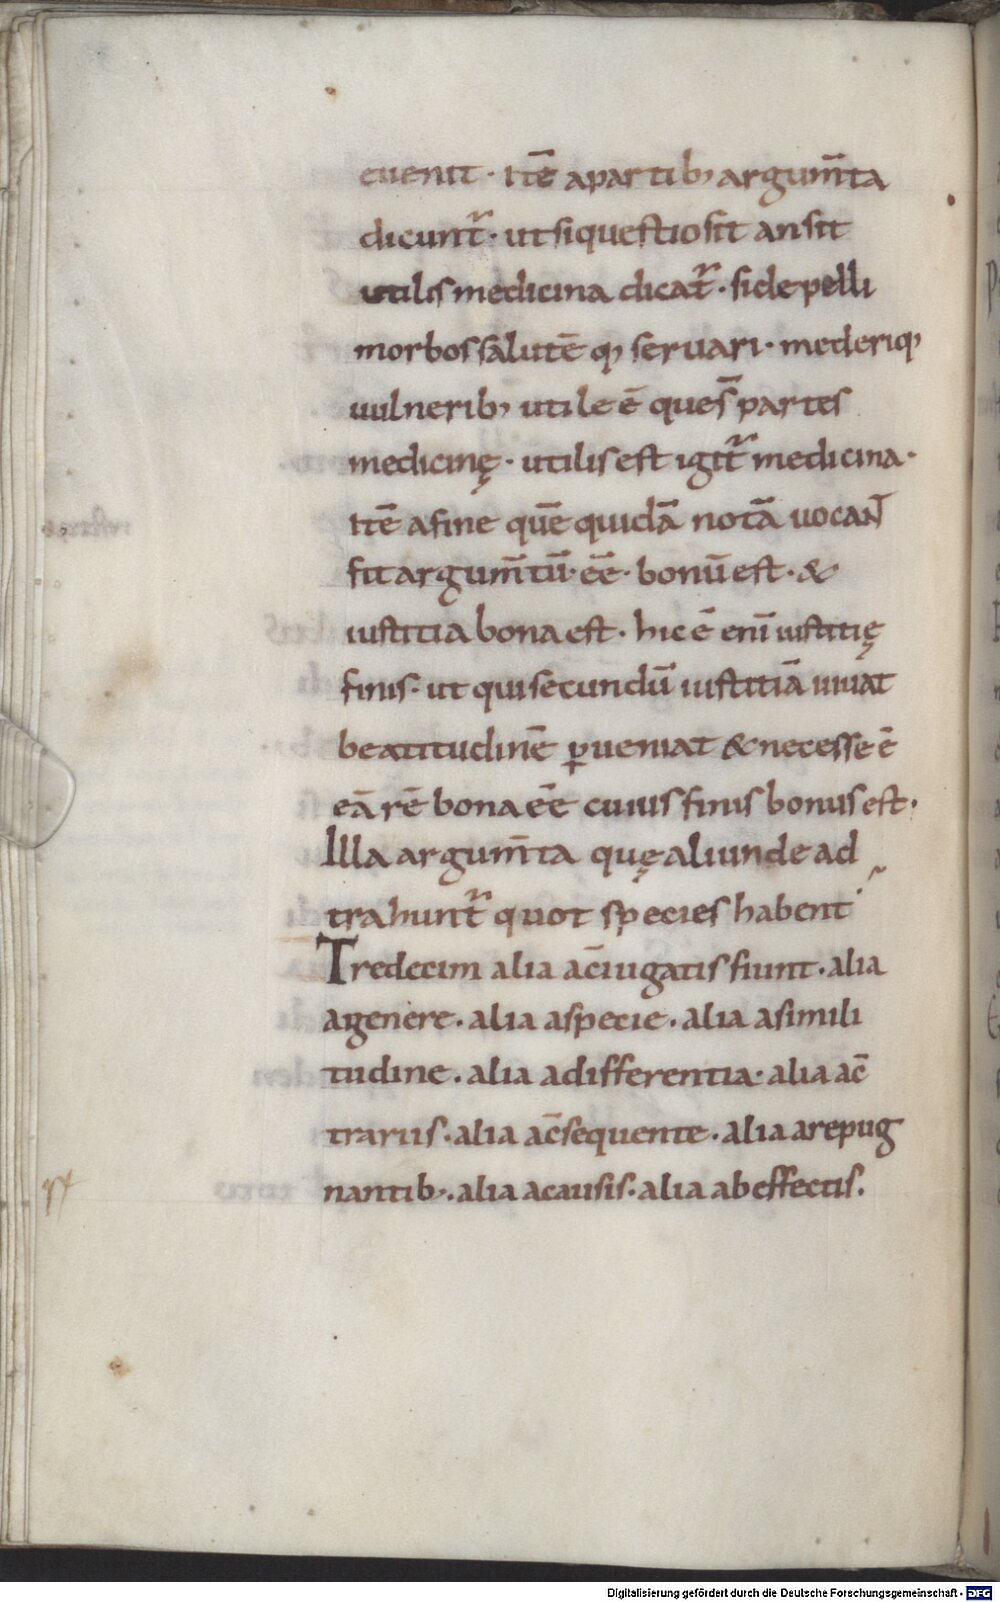 euenit · Itē apartib; argum̄ta
dicunt᷑ · utsiquestiosit ansit
utilis medicina dicat᷑ · sidepelli
morbos salutē q; seruari · mederiq;
uulnerib; utile ē ques̄ partes
medicinę · utilis est igit᷑ medicina ·
Itē afine quē quidā notā uocaN̄
fit argum̄tū · eē · bonū est · &
iustitia bona est · hic ē enī iustitię
finis · ut qui secundū iustitiā uiuat
beatitudinē ꝑueniat & necesse ē
eā rē bona eē cuius finis bonus est ·
Illa argum̄ta quę aliunde ad
trahunt᷑ quot species habent
Tredecim alia ac̄iugatis fiunt · alia
agenere · alia aspecie · alia asimili
tudine · alia adifferentia · alia ac̄
trariis · alia ac̄sequente · alia arepug
nantib; · alia acausis · alia abeffectis ·
Digitalisierung gefördert durch die Deutsche Forschungsgemeinschaft - DFG